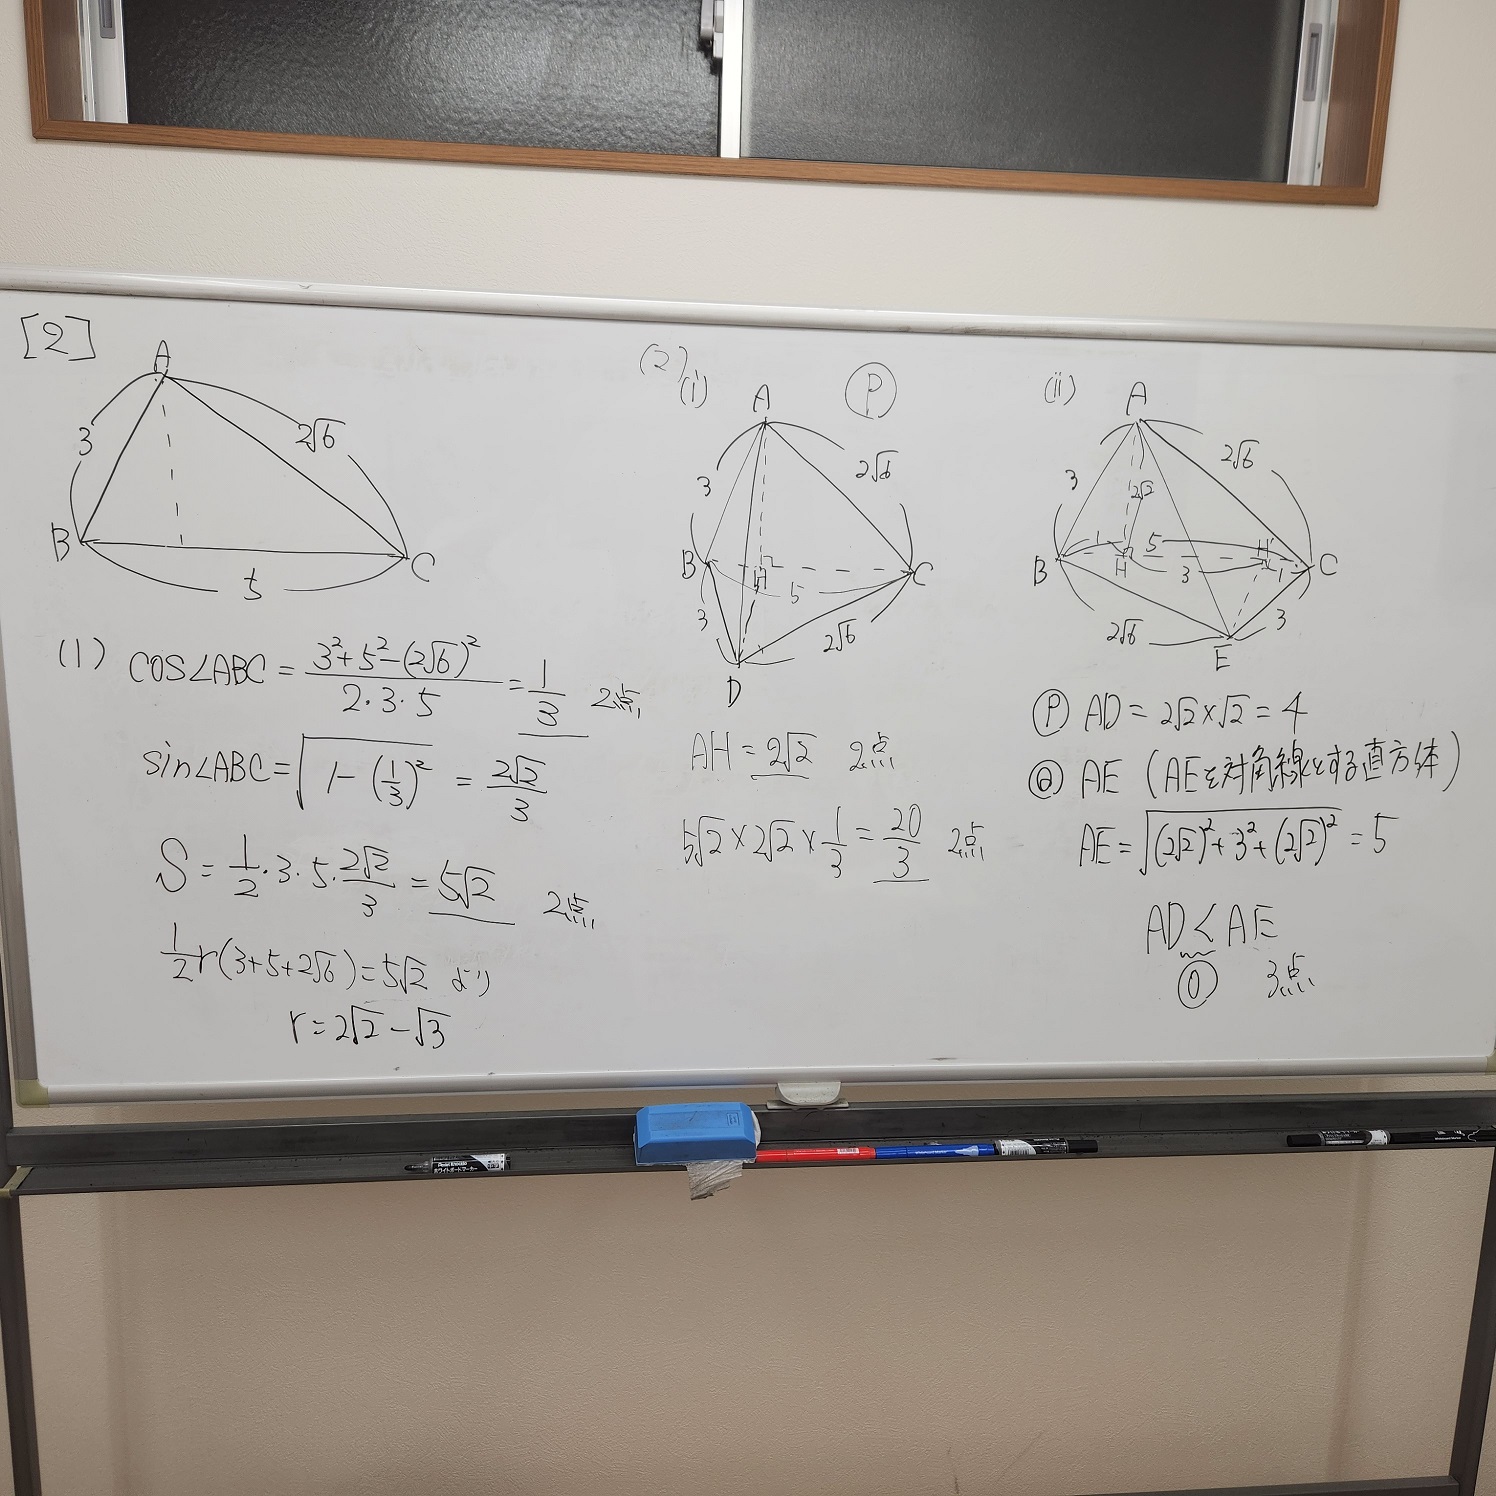 [2]
A
3
2√6
B
C
5
(1) cos∠ABC = \frac{3²+5²-(2√6)²}{2・3・5} = \frac{1}{3} 2点
sin∠ABC = \sqrt{1-(\frac{1}{3})²} = \frac{2√2}{3}
S = \frac{1}{2}・3・5・\frac{2√2}{3} = 5√2 2点
\frac{1}{2}r(3+5+2√6)=5√2 より
r=2√2-√3
(2)
(i)
Ⓟ
A
3
2√6
B
H
C
5
3
2√6
D
AH = 2√2 2点
5√2×2√2×\frac{1}{3} = \frac{20}{3} 2点
(ii)
A
3
2√6
2√2
B
1
5
H
H'
3
1
C
2√6
3
E
Ⓟ AD = 2√2×√2 = 4
AE (AEを対角線とする直方体)
AE = \sqrt{(2√2)²+3²+(2√2)²} = 5
AD < AE
⓪ 3点